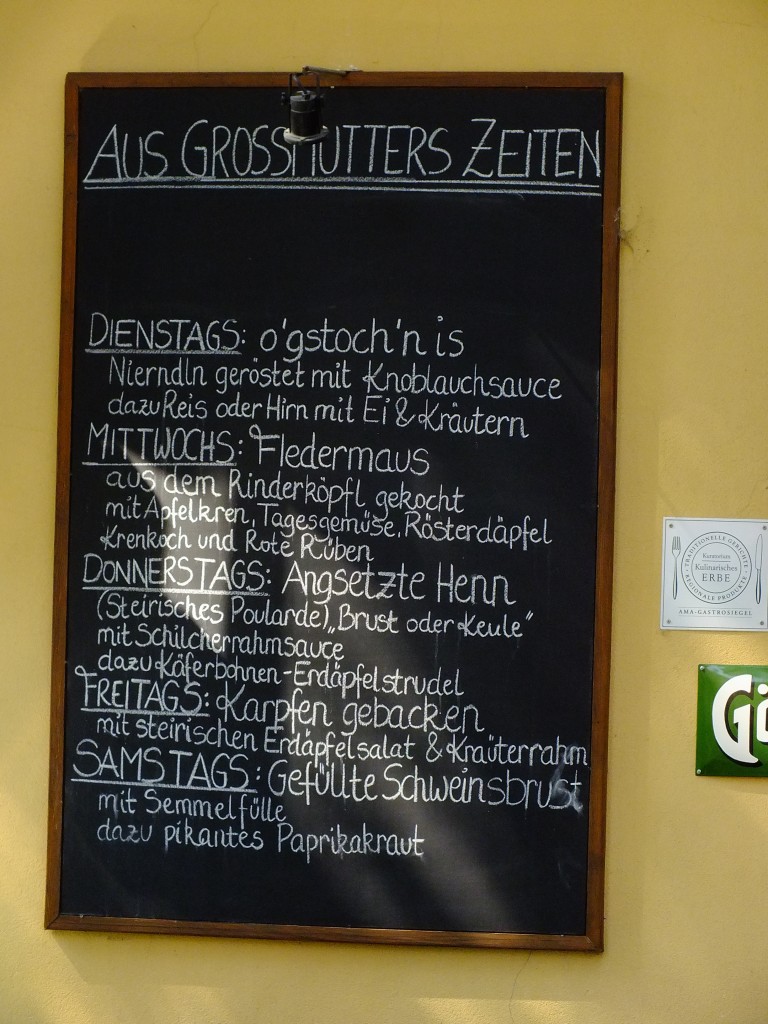 AUS GROSSMUTTERS ZEITEN
DIENSTAGS: o'gstoch'n is
Nierndln geröstet mit Knoblauchsauce
dazu Reis oder Hirn mit Ei & Kräutern
MITTWOCHS: Fledermaus
aus dem Rinderköpfl gekocht
mit Apfelkren, Tagesgemüse, Rösterdäpfel
Krenkoch und Rote Rüben
DONNERSTAGS: Angsetzte Henn
(Steirisches Poularde) „Brust oder Keule"
mit Schilcherrahmsauce
dazu Käferbohnen-Erdäpfelstrudel
FREITAGS: Karpfen gebacken
mit steirischen Erdäpfelsalat & Kräuterrahm
SAMSTAGS: Gefüllte Schweinsbrust
mit Semmelfülle
dazu pikantes Paprikakraut
TRADITIONELLE GERICHTE
Kuratorium
Kulinarisches
ERBE
REGIONALE PRODUKTE
AMA-GASTROSIEGEL
Gö